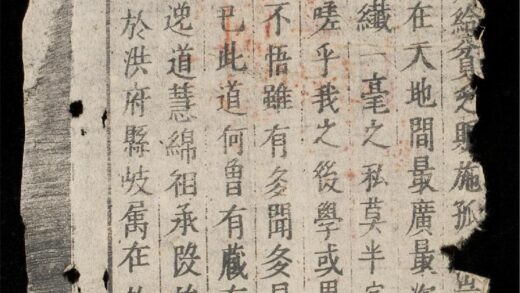 給貧乏賑施孤
在天地間最廣最
纖一毫之私莫半
嗟乎我之後學或
不悟雖有多聞多
已此道何曾有藏
逸道慧綿祖承
於洪府縣岐屬在